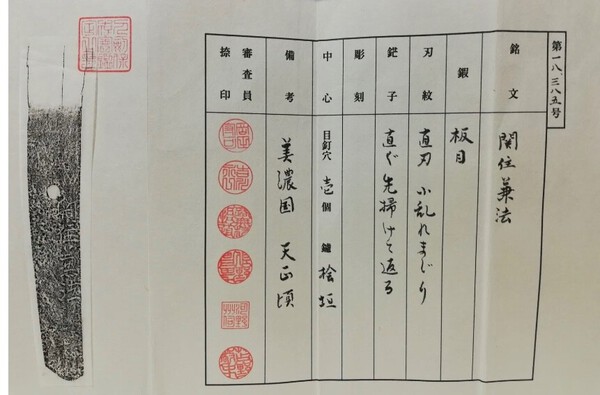 第一八三八五号
銘文 関住兼法
鍜 板目
刃紋 直刃 小乱れまじり
鋩子 直ぐ先掃けて返る
彫刻
中心 目釘穴 壱個 鑢 桧垣
備考 美濃国 天正頃
審査員捺印